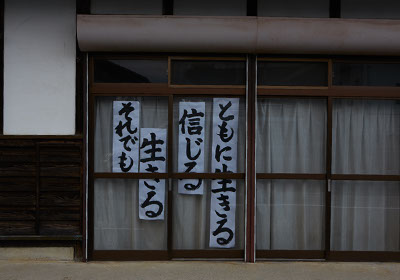 ともに生きる
信じる
生きる
それでも